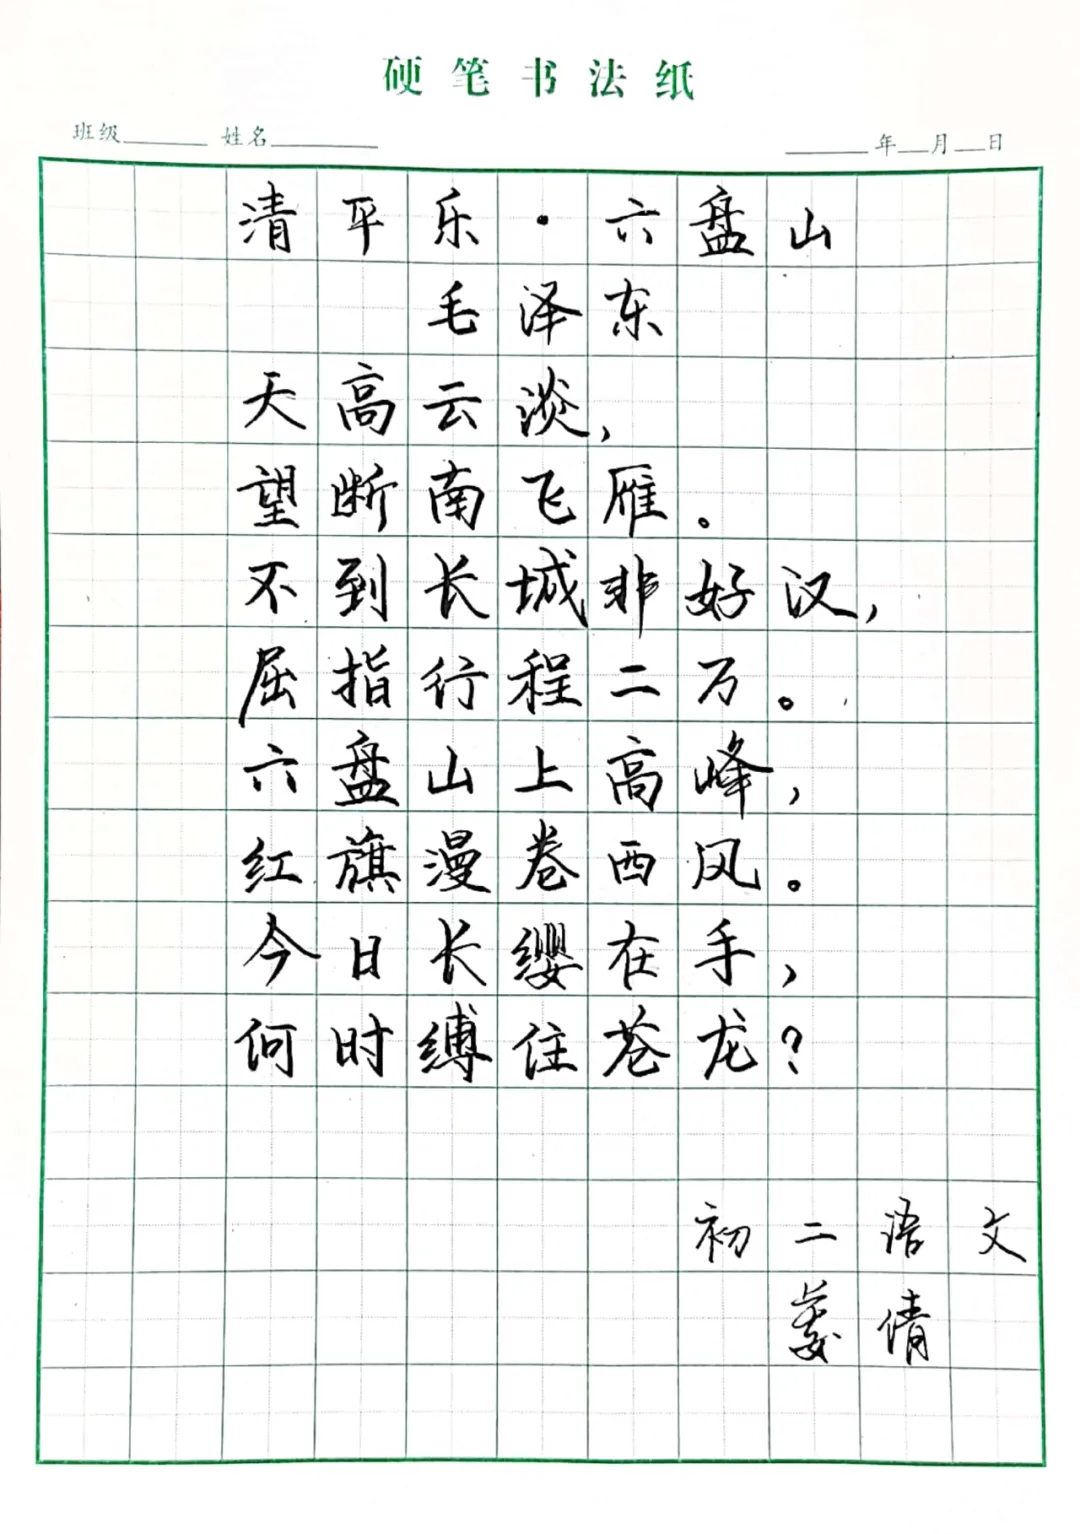 硬笔书法纸
班级 姓名 年 月 日
清平乐·六盘山
毛泽东
天高云淡，
望断南飞雁。
不到长城非好汉，
屈指行程二万。
六盘山上高峰，
红旗漫卷西风。
今日长缨在手，
何时缚住苍龙？
初二语文
姜倩